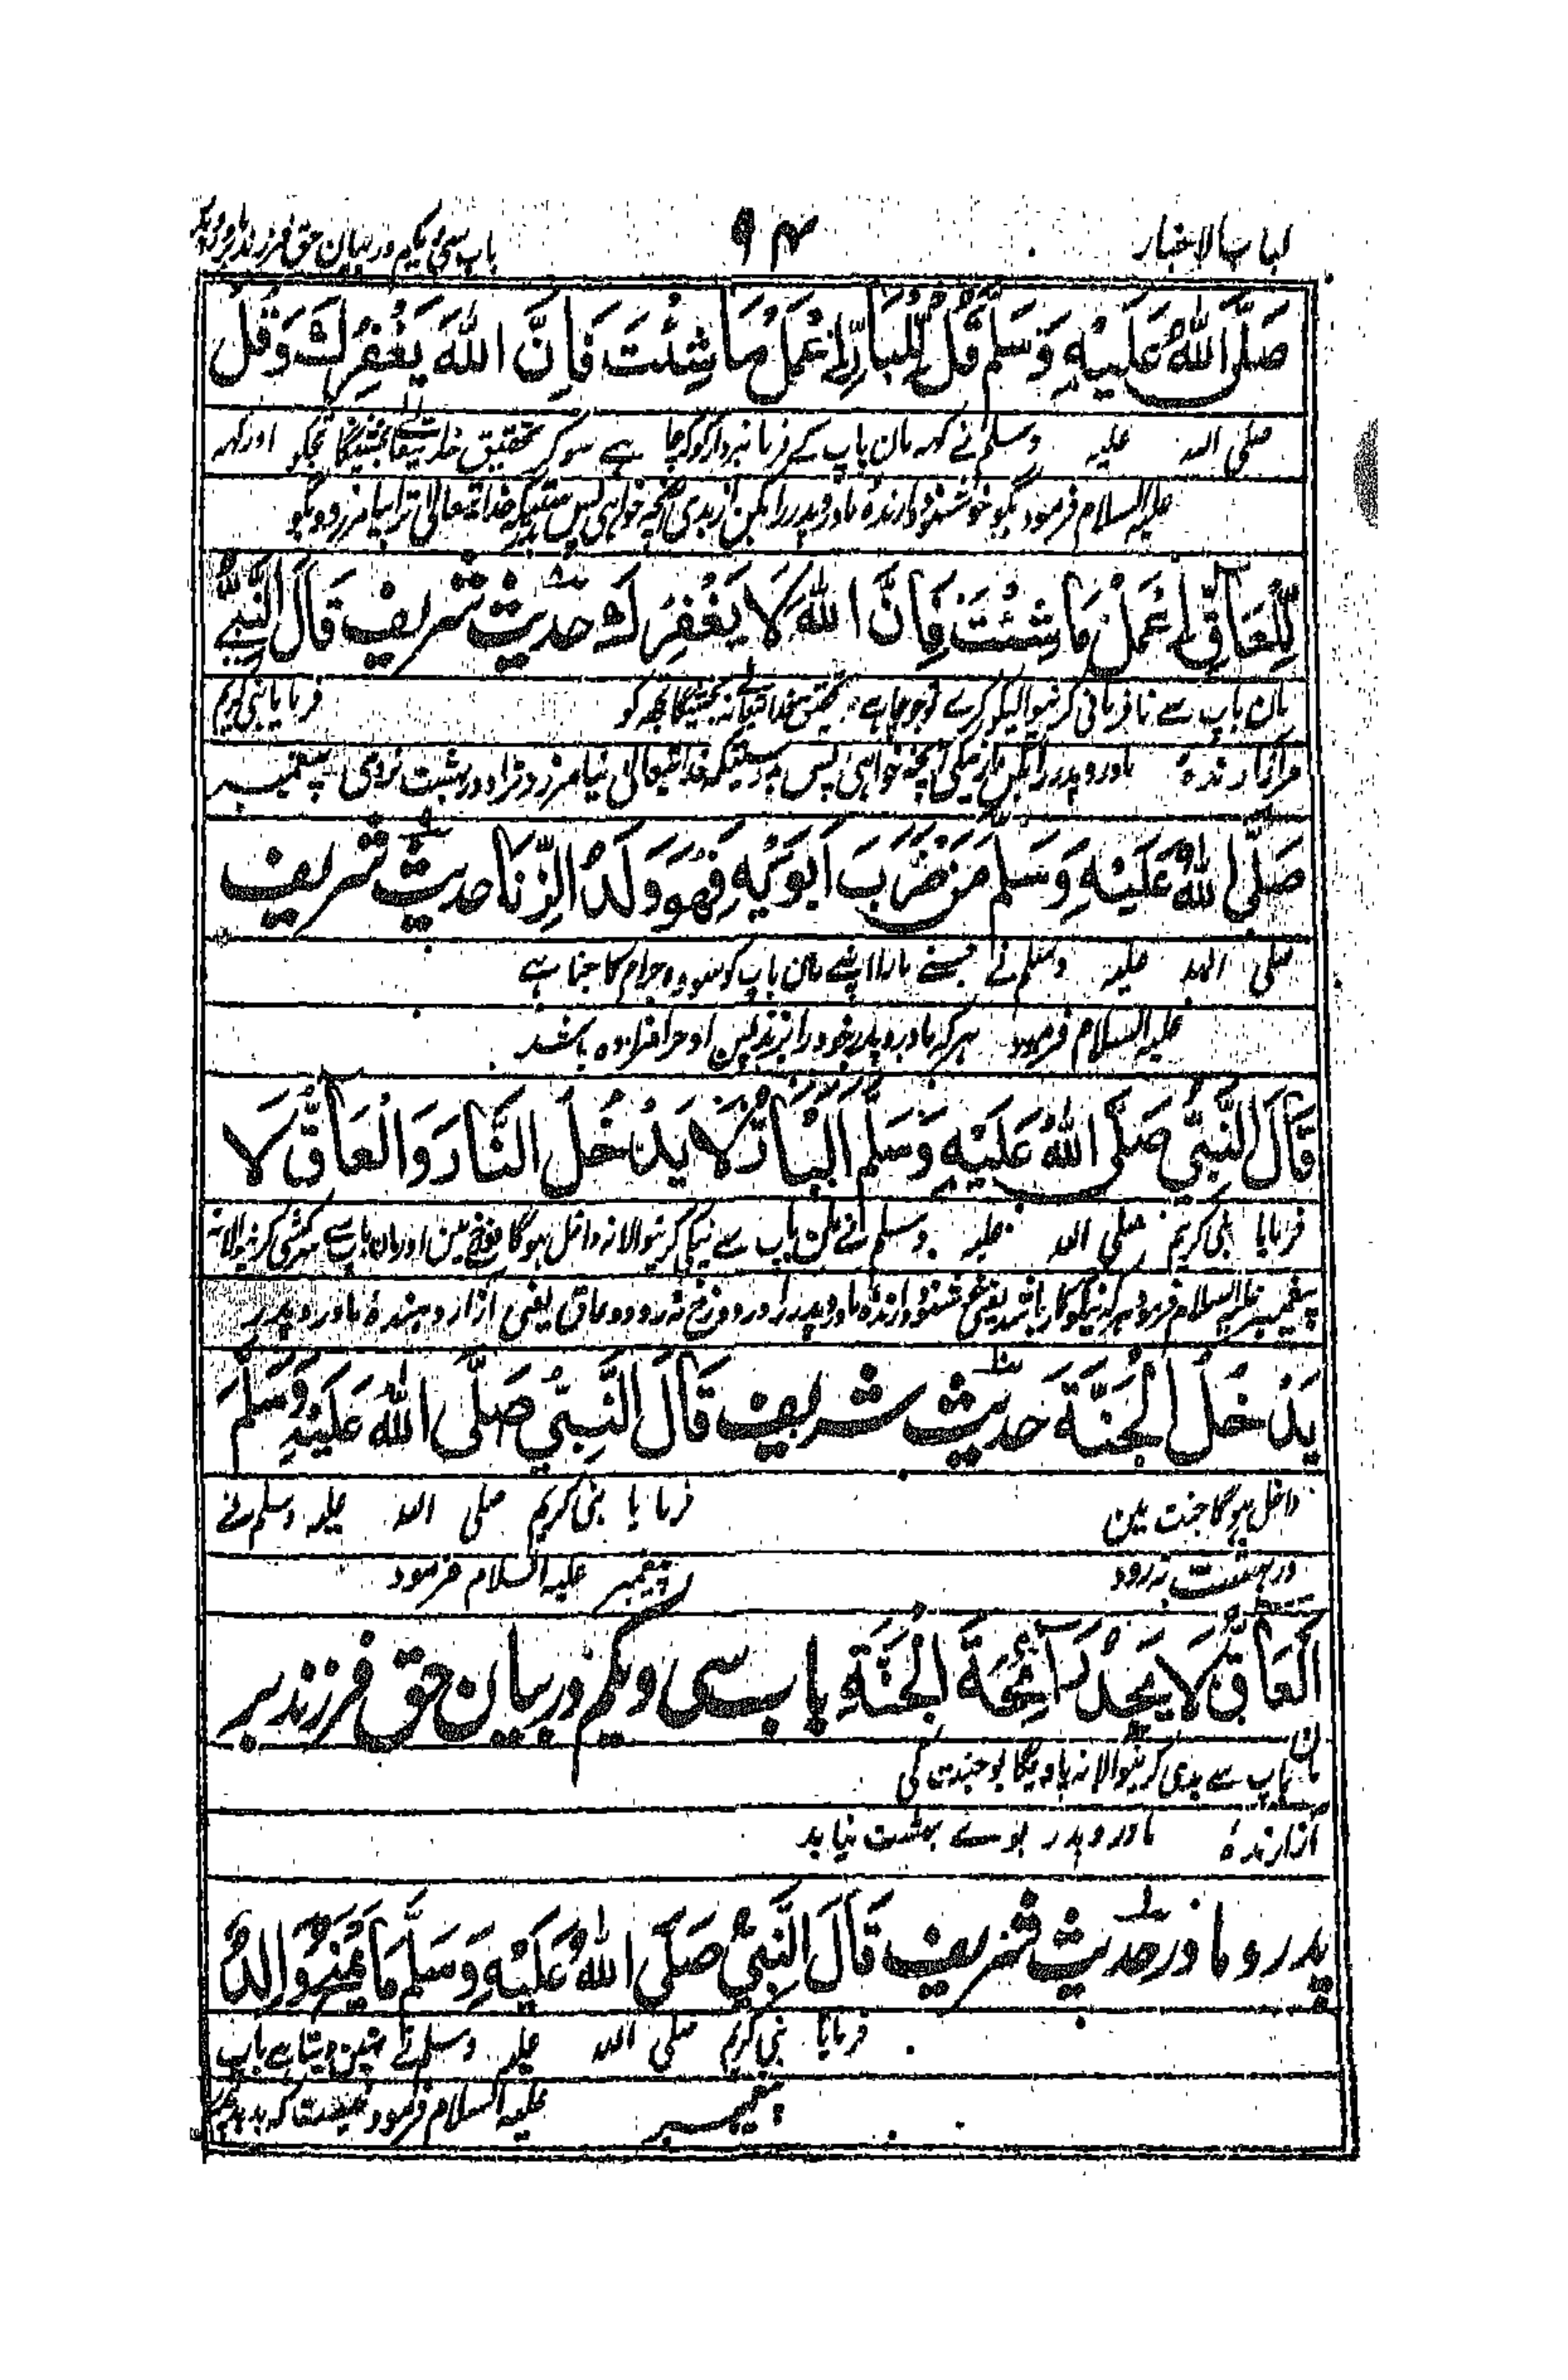 لباب الاخبار
۹۴
باب سی و یکم در بیان حق فرزند بر پدر
صَلَّى اللهُ عَلَيْهِ وَسَلَّمَ قُلْ لِلْبَارِّ اِعْمَلْ مَا شِئْتَ فَاِنَّ اللهَ يَغْفِرُ لَكَ وَقُلْ
صلی اللہ علیہ وسلم نے کہہ مان باپ کے فرمانبردار کو کر جو چاہے سو کر تحقیق خدایتعالی بخشیگا تجکو اور کہہ
علیہ السلام فرمود بگو خوشنود دارندۂ مادر و پدر را بکن از بدی آنچہ خواہی پس بدرستیکہ خدایتعالی ترا بیامرزد و بگو
لِلْعَاقِّ اِعْمَلْ مَا شِئْتَ فَاِنَّ اللهَ لَا يَغْفِرُ لَكَ حدیث شریف قَالَ النَّبِيُّ
مان باپ سے نافرمانی کرنیوالیکو کرے تو جو چاہے تحقیق خدایتعالی نہ بخشیگا تجھ کو فرمایا نبی کریم
مر آزارندۂ مادر و پدر را بکن از نیکی آنچہ خواہی پس بدرستیکہ خدایتعالی نیامرزد ترا و در بہشت نروی پیغمبر
صَلَّى اللهُ عَلَيْهِ وَسَلَّمَ مَنْ ضَرَبَ اَبَوَيْهِ فَهُوَ وَلَدُ الزِّنَا حدیث شریف
صلی اللہ علیہ وسلم نے جسنے مارا اپنے مان باپ کو سو وہ حرام کا جنا ہے
علیہ السلام فرمود ہر کہ مادر و پدر خود را بزند پس او حرامزادہ باشد
قَالَ النَّبِيُّ صَلَّى اللهُ عَلَيْهِ وَسَلَّمَ الْبَارُّ لَا يَدْخُلُ النَّارَ وَالْعَاقُّ لَا
فرمایا نبی کریم صلی اللہ علیہ وسلم نے مان باپ سے نیکی کرنیوالا نہ داخل ہوگا دوزخ مین اور مان باپ سے سرکشی کرنیوالا نہ
پیغمبر علیہ السلام فرمود ہر کہ نیکوکار باشد یعنی خوشنود دارندۂ مادر و پدر را در دوزخ نہ رود و عاق یعنی آزار دہندۂ مادر و پدر
يَدْخُلُ الْجَنَّةَ حدیث شریف قَالَ النَّبِيُّ صَلَّى اللهُ عَلَيْهِ وَسَلَّمَ
داخل ہوگا جنت مین فرمایا نبی کریم صلی اللہ علیہ وسلم نے
در بہشت نہ رود پیغمبر علیہ السلام فرمود
اَلْعَاقُّ لَا يَجِدُ رَآئِحَةَ الْجَنَّةِ باب سی و یکم در بیان حق فرزند بر
مان باپ سے بدی کرنیوالا نہ پاویگا بو جنت کی
آزارندۂ مادر و پدر بوے بہشت نیابد
پدر و مادر حدیث شریف قَالَ النَّبِيُّ صَلَّى اللهُ عَلَيْهِ وَسَلَّمَ مَا يَمْنَحُ وَالِدٌ
فرمایا نبی کریم صلی اللہ علیہ وسلم نے نہین دیتا ہے باپ
پیغمبر علیہ السلام فرمود نیست کہ بدہد